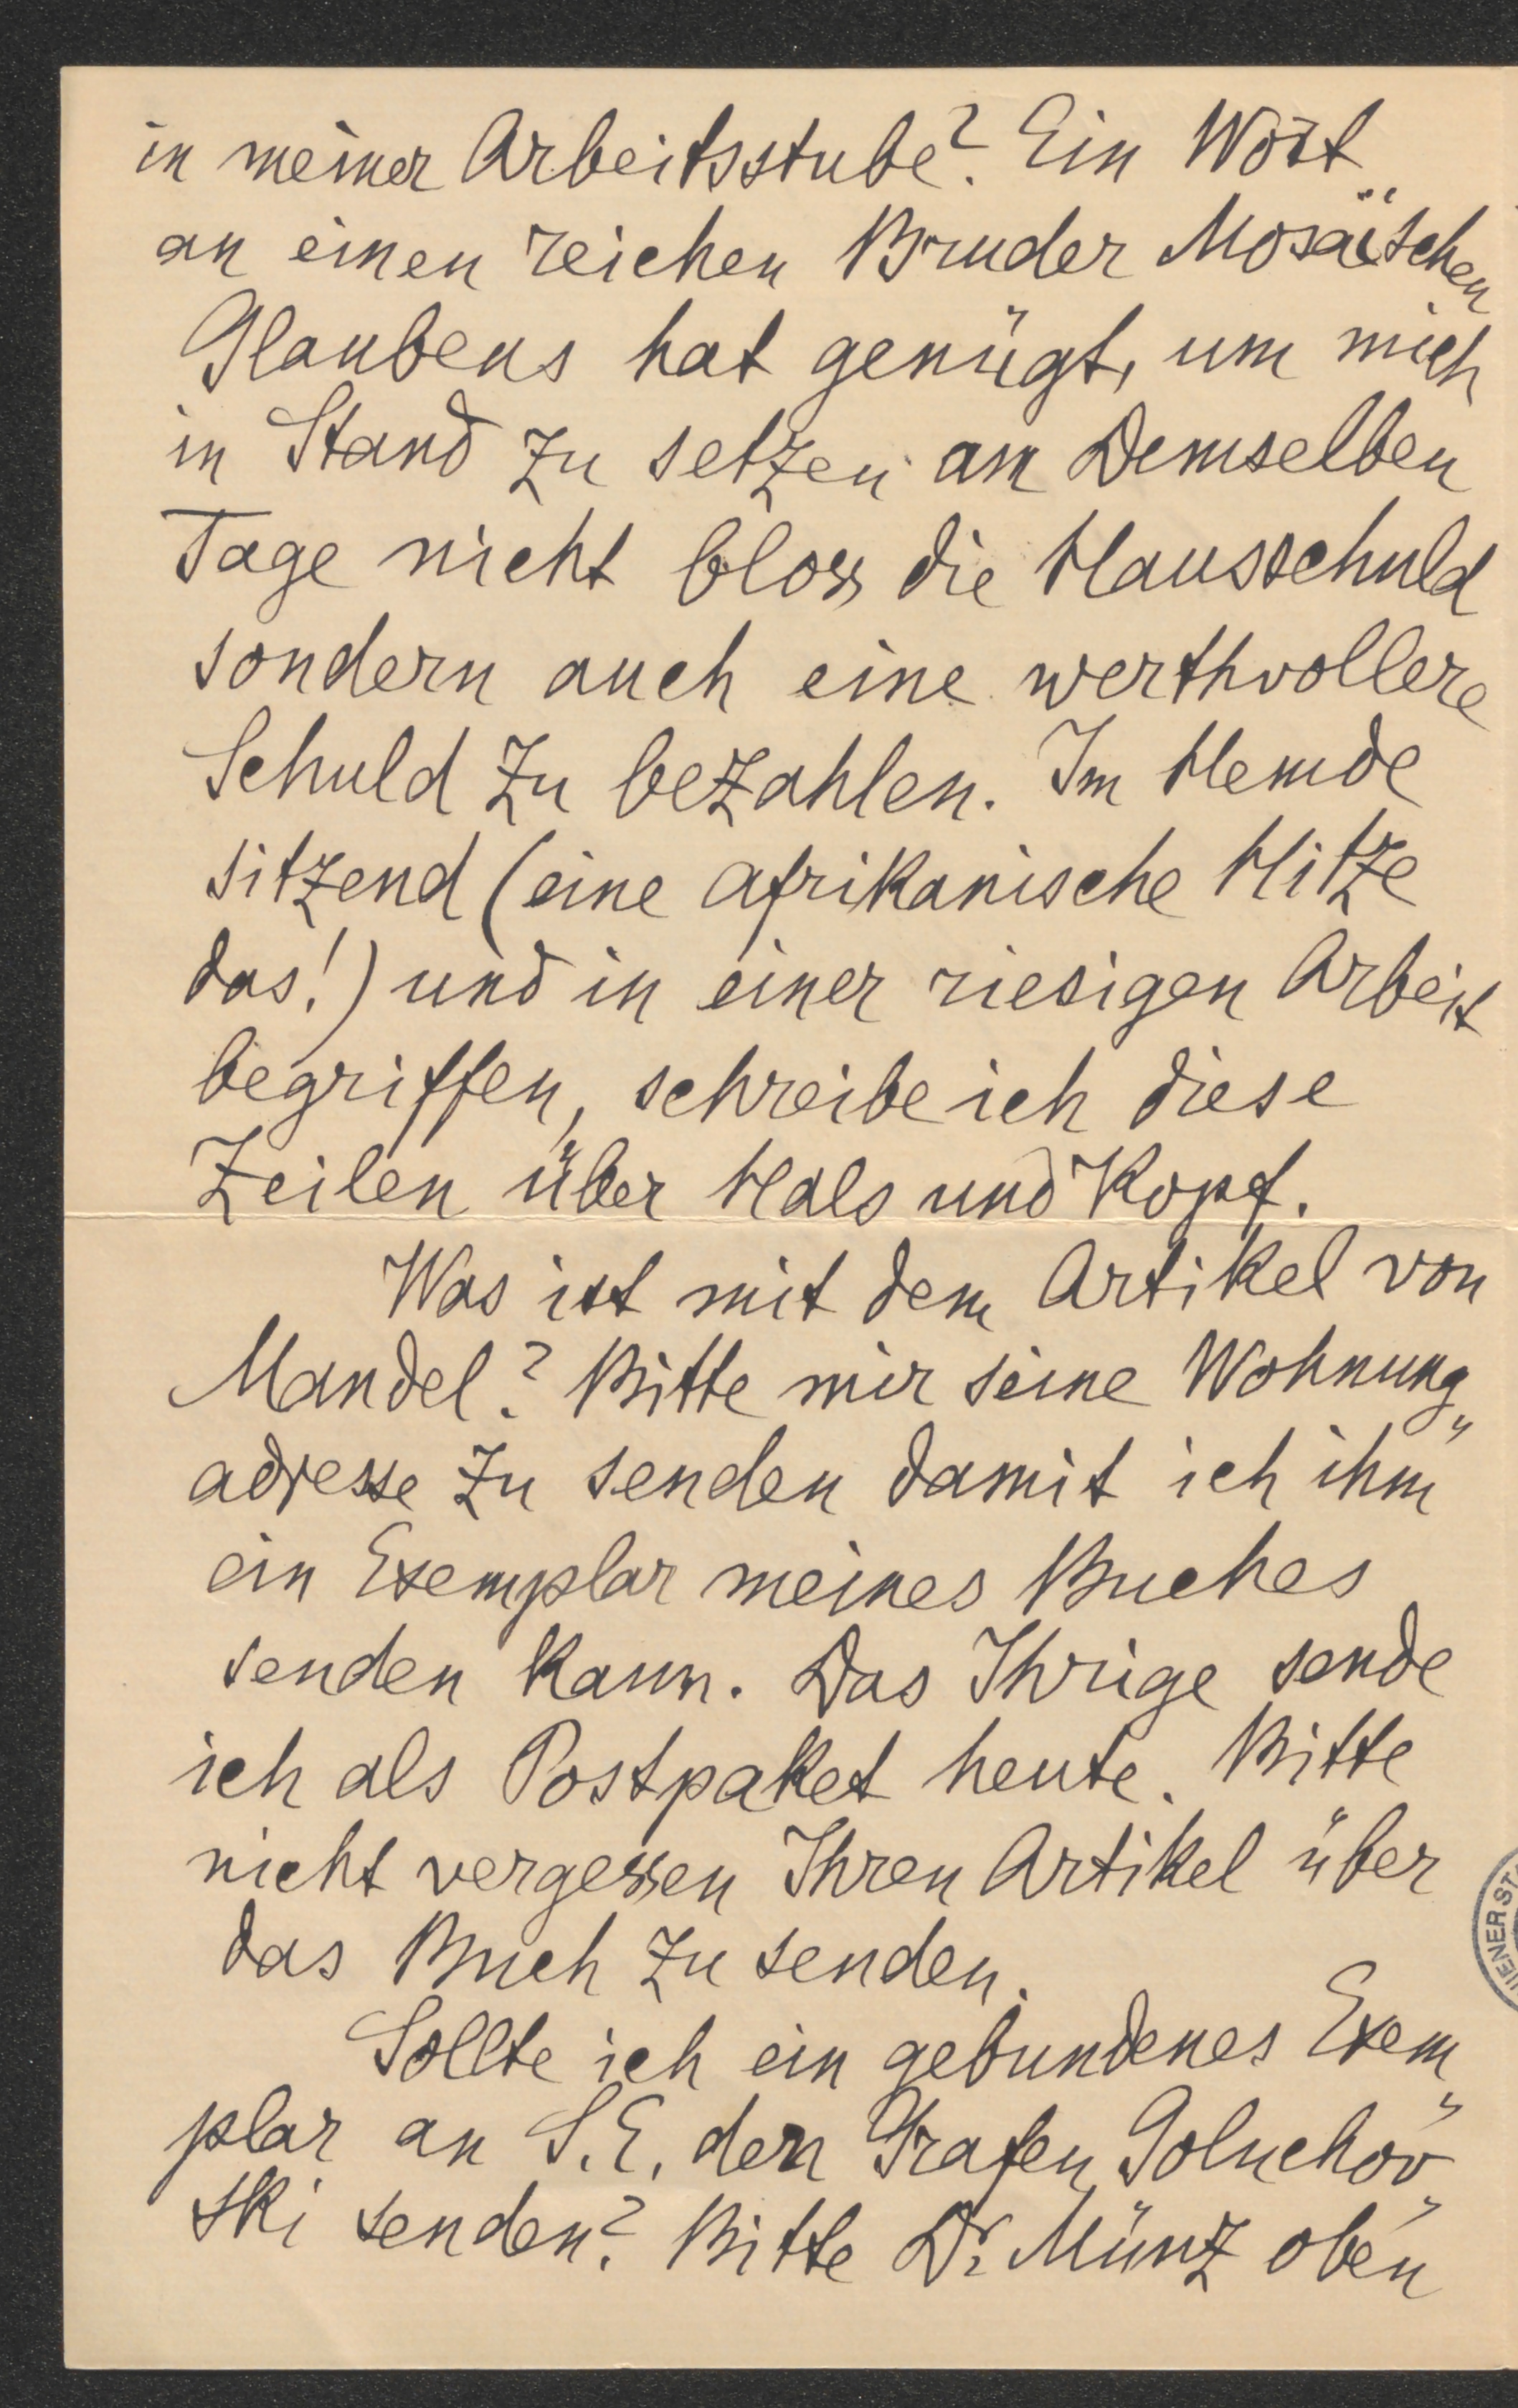 in meiner Arbeitsstube? Ein Wort
an einen reichen Bruder Mosaïschen
Glaubens hat genügt, um mich
in Stand zu setzen am Demselben
Tage nicht bloss die Hausschuld
sondern auch eine werthvollere
Schuld zu bezahlen. Im Hemde
sitzend (eine Afrikanische Hitze
das!) und in einer riesigen Arbeit
begriffen, schreibe ich diese
Zeilen über Hals und Kopf.
Was ist mit dem Artikel von
Mandel? Bitte mir seine Wohnung„
adresse zu senden damit ich ihm
ein Exemplar meines Buches
senden kann. Das Ihrige sende
ich als Postpaket heute. Bitte
nicht vergessen Ihren Artikel über
das Buch zu senden.
Sollte ich ein gebundenes Exem„
plar an S.E. den Grafen Goluchow„
ski senden? Bitte Dr. Münz oben
WIENER ST